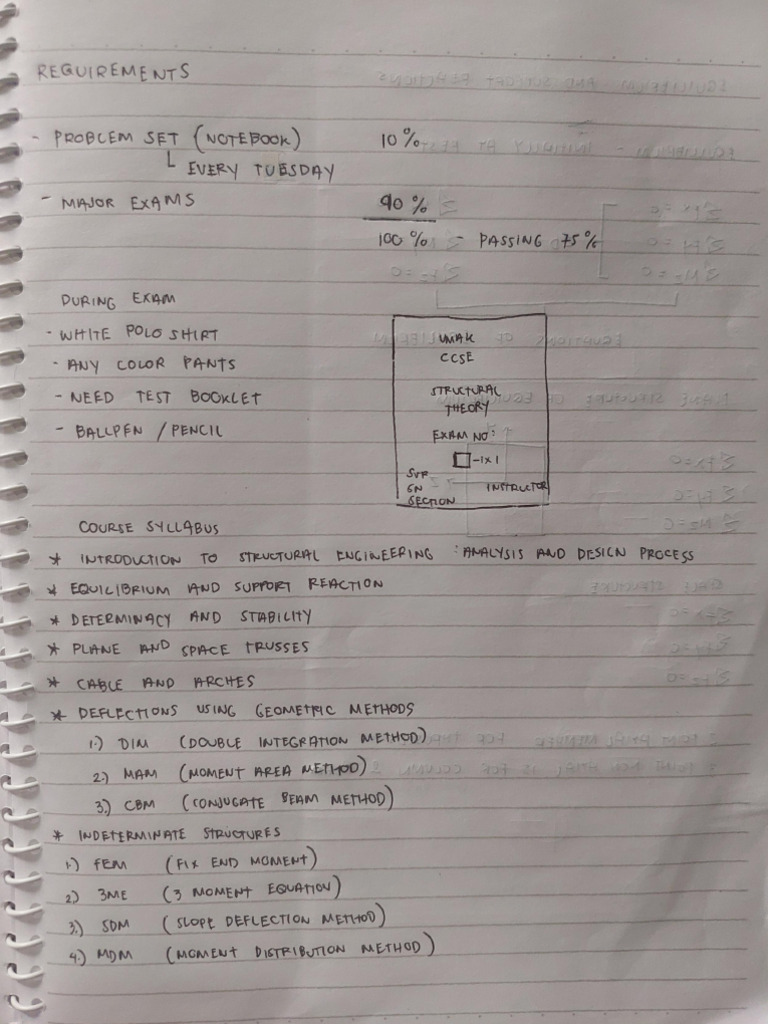 REQUIREMENTS
- PROBLEM SET (NOTEBOOK) 10%
EVERY TUESDAY
- MAJOR EXAMS 90%
100% - PASSING 75%
DURING EXAM
- WHITE POLO SHIRT
- ANY COLOR PANTS
- NEED TEST BOOKLET
- BALLPEN / PENCIL
UMAK
CCSE
STRUCTURAL
THEORY
EXAM NO:
- 1x1
GN INSTRUCTOR
SECTION
COURSE SYLLABUS
* INTRODUCTION TO STRUCTURAL ENGINEERING : ANALYSIS AND DESIGN PROCESS
* EQUILIBRIUM AND SUPPORT REACTION
* DETERMINACY AND STABILITY
* PLANE AND SPACE TRUSSES
* CABLE AND ARCHES
* DEFLECTIONS USING GEOMETRIC METHODS
1.) DIM (DOUBLE INTEGRATION METHOD)
2.) MAM (MOMENT AREA METHOD)
3.) CBM (CONJUGATE BEAM METHOD)
* INDETERMINATE STRUCTURES
1.) FEM (FIX END MOMENT)
2.) 3ME (3 MOMENT EQUATION)
3.) SDM (SLOPE DEFLECTION METHOD)
4.) MDM (MOMENT DISTRIBUTION METHOD)